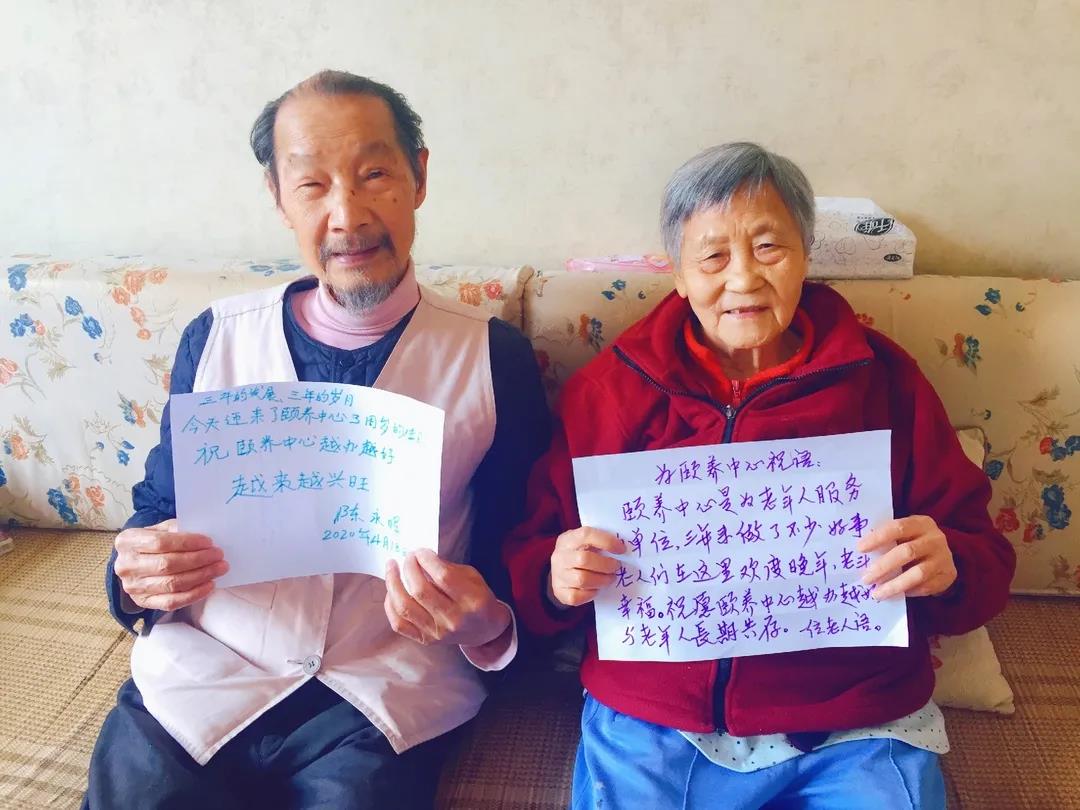 三年的发展、三年的岁月
今天迎来了颐养中心3周岁的生
祝颐养中心越办越好
越来越兴旺
陈永
2020年4月18
为颐养中心祝语:
颐养中心是为老年人服务
单位,三年来做了不少好事,
老人们在这里欢度晚年,老年
幸福。祝愿颐养中心越办越好
与老年人長期共存。一位老人语。